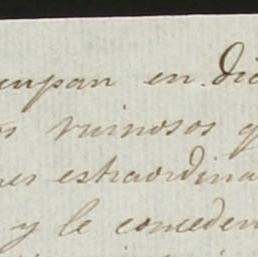 cupan en dic
os ruinosos q
nes estraordina
y le conceden